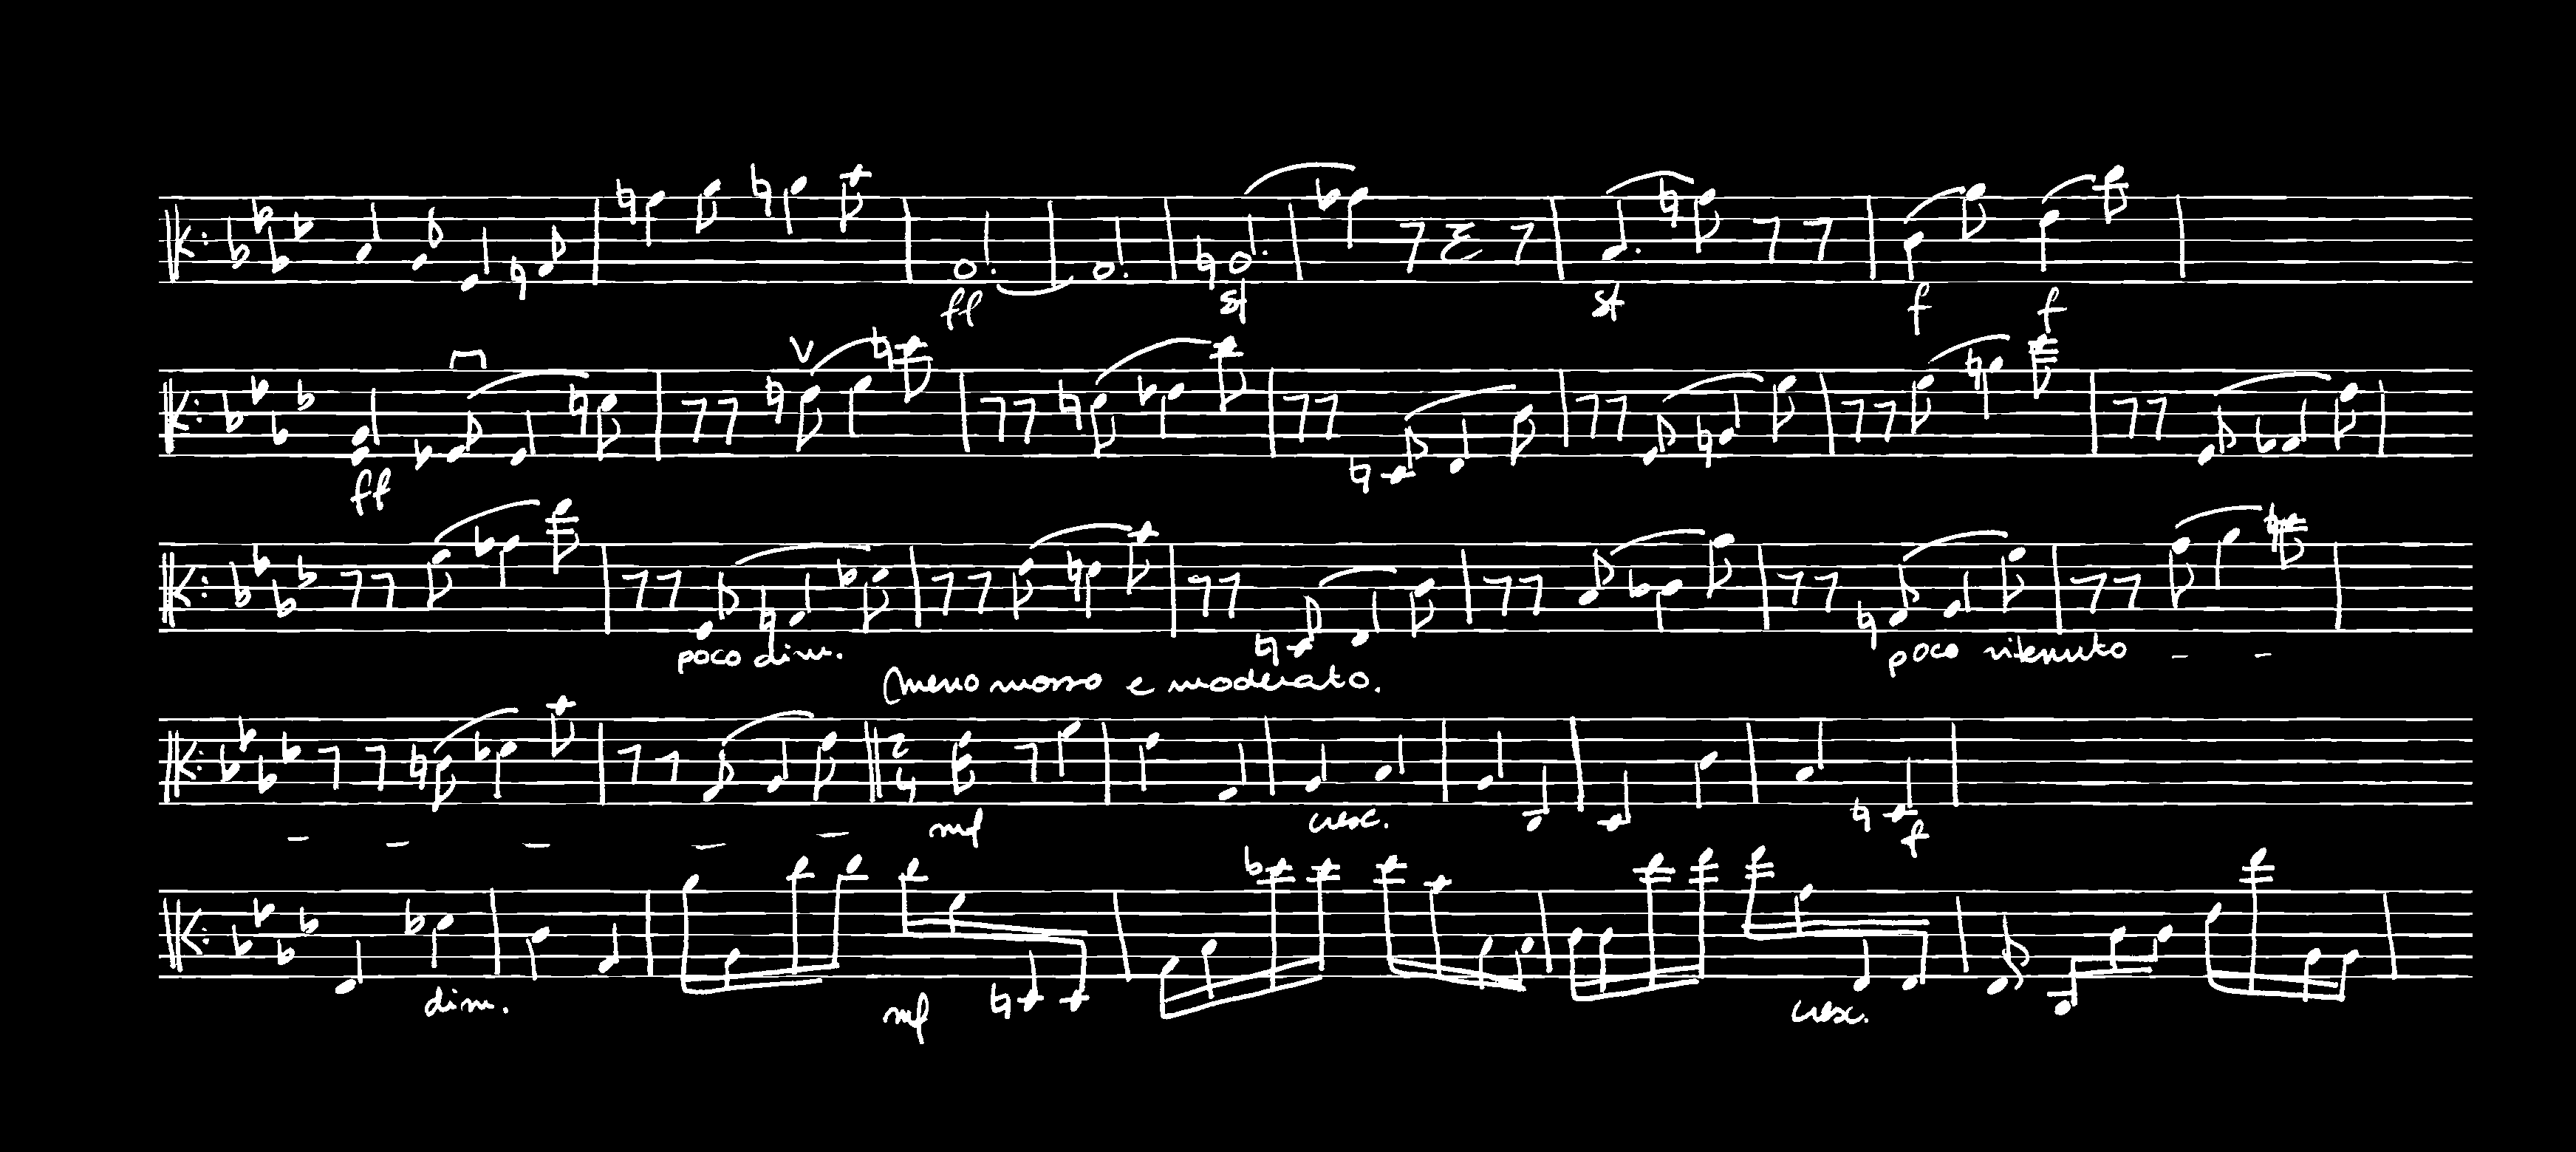 ff sf sf f f
ff
poco dim. poco ritenuto - -
Meno mosso e moderato.
2
4
- - - - - mf cresc. f
dim. mf cresc.